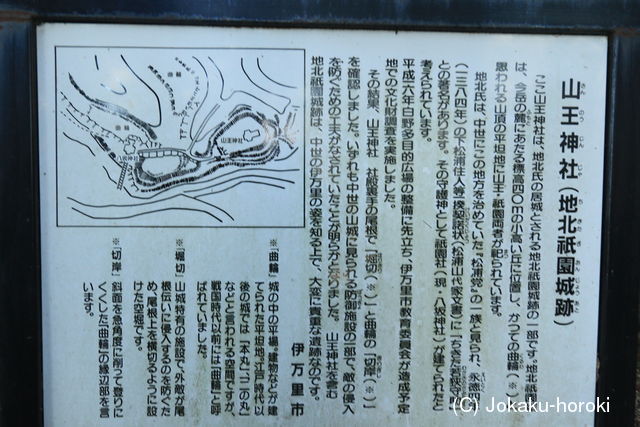 山王神社(地北祇園城跡)
ここ山王神社は、地北氏の居城とされる地北祇園城跡の一部です。地北祇園城
は、今岳の麓にあたる標高四〇mの小高い丘に位置し、かつての曲輪(※)と
思われる山頂の平坦地に山王・祇園両者が祀られています。
地北氏は、中世にこの地方を治めていた『松浦党』の一族と見られ、永徳四年
(一三八四年)の「下松浦住人等一揆契諾状(松浦山代家文書)」に「ちきた若狭守」
との署名があります。その守護神として祇園社(現・八坂神社)が建てられたと
考えられています。
平成六年白野多目的広場の整備に先立ち、伊万里市教育委員会が造成予定
地での文化財調査を実施しました。
その結果、山王神社 社殿裏手の尾根で「堀切(※)」と曲輪の「切岸(※)」
を確認しました。いずれも中世の山城に見られる防御施設の一部で、敵の侵入
を防ぐための工夫がなされていたことが明らかとなりました。山王神社を含む
地北祇園城跡は、中世の伊万里の姿を知る上で、大変に貴重な遺跡なのです。
伊万里市
※「曲輪」 城の中の平場。建物などが建
てられた平坦地で江戸時代以
後の城では「本丸」「二の丸」
などと言われる空間ですが、
戦国時代以前には「曲輪」と呼
ばれていました。
※「堀切」 山城特有の施設で、外敵が尾
根伝いに侵入するのを防ぐた
め、尾根上を横切るように設
けた空堀です。
※「切岸」 斜面を急角度に削って登りに
くくした「曲輪」の縁辺部を言
います。
曲輪
曲輪
山王神社
八坂神社
(C) Jokaku-horoki